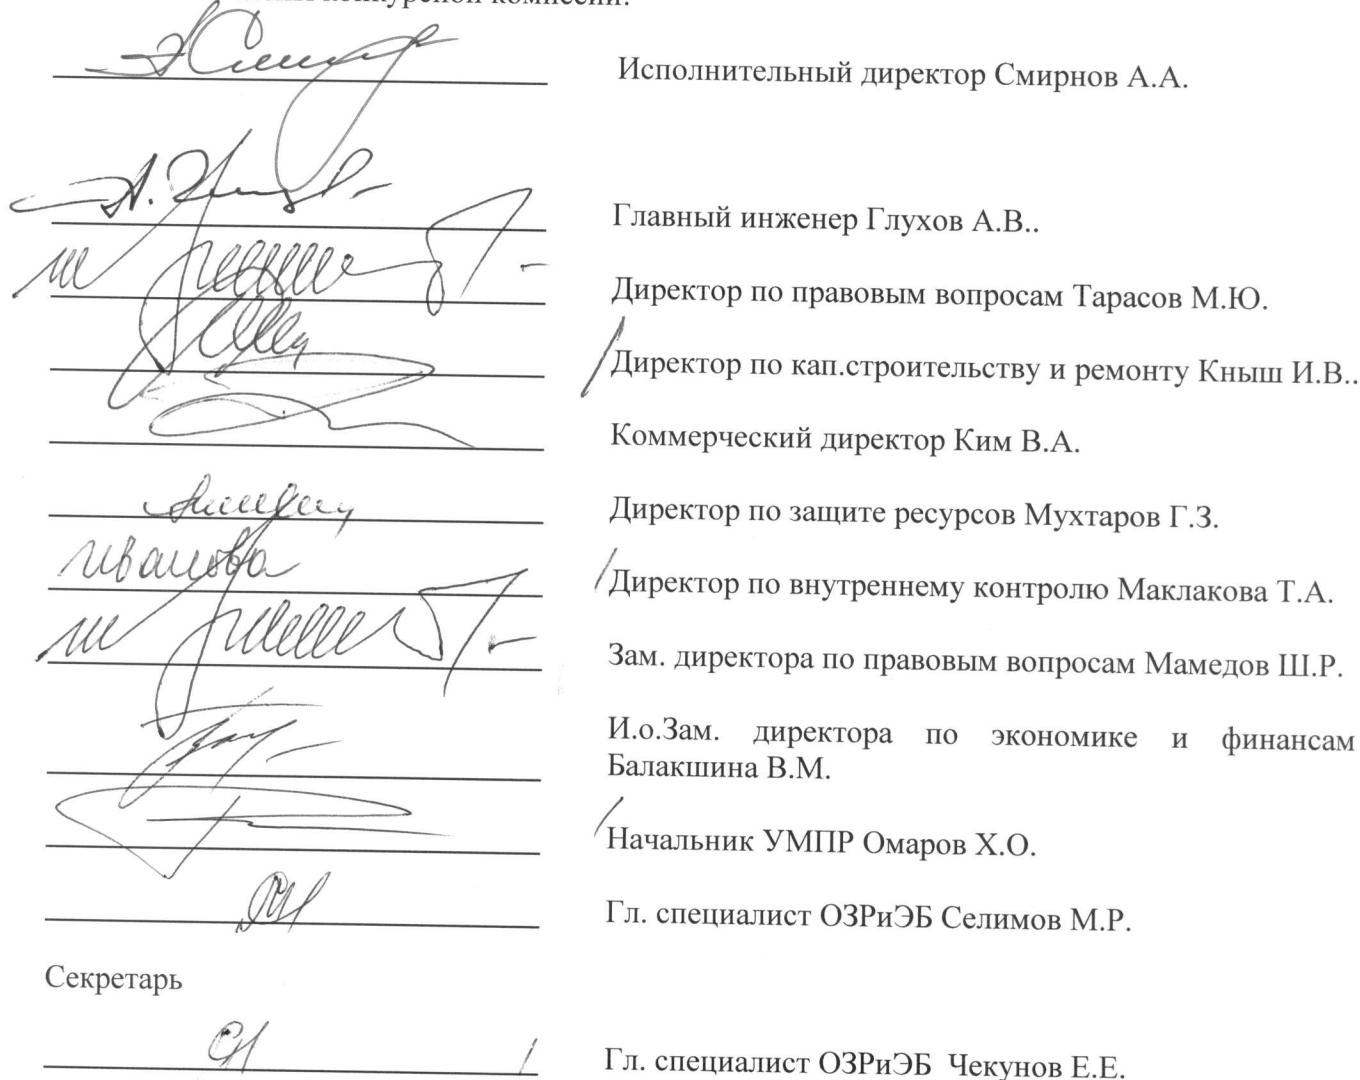 конкурсной комиссии:
Исполнительный директор Смирнов А.А.
Главный инженер Глухов А.В..
Директор по правовым вопросам Тарасов М.Ю.
Директор по кап.строительству и ремонту Кныш И.В..
Коммерческий директор Ким В.А.
Директор по защите ресурсов Мухтаров Г.З.
Директор по внутреннему контролю Маклакова Т.А.
Зам. директора по правовым вопросам Мамедов Ш.Р.
И.о.Зам. директора по экономике и финансам
Балакшина В.М.
Начальник УМПР Омаров Х.О.
Гл. специалист ОЗРиЭБ Селимов М.Р.
Секретарь
Гл. специалист ОЗРиЭБ Чекунов Е.Е.